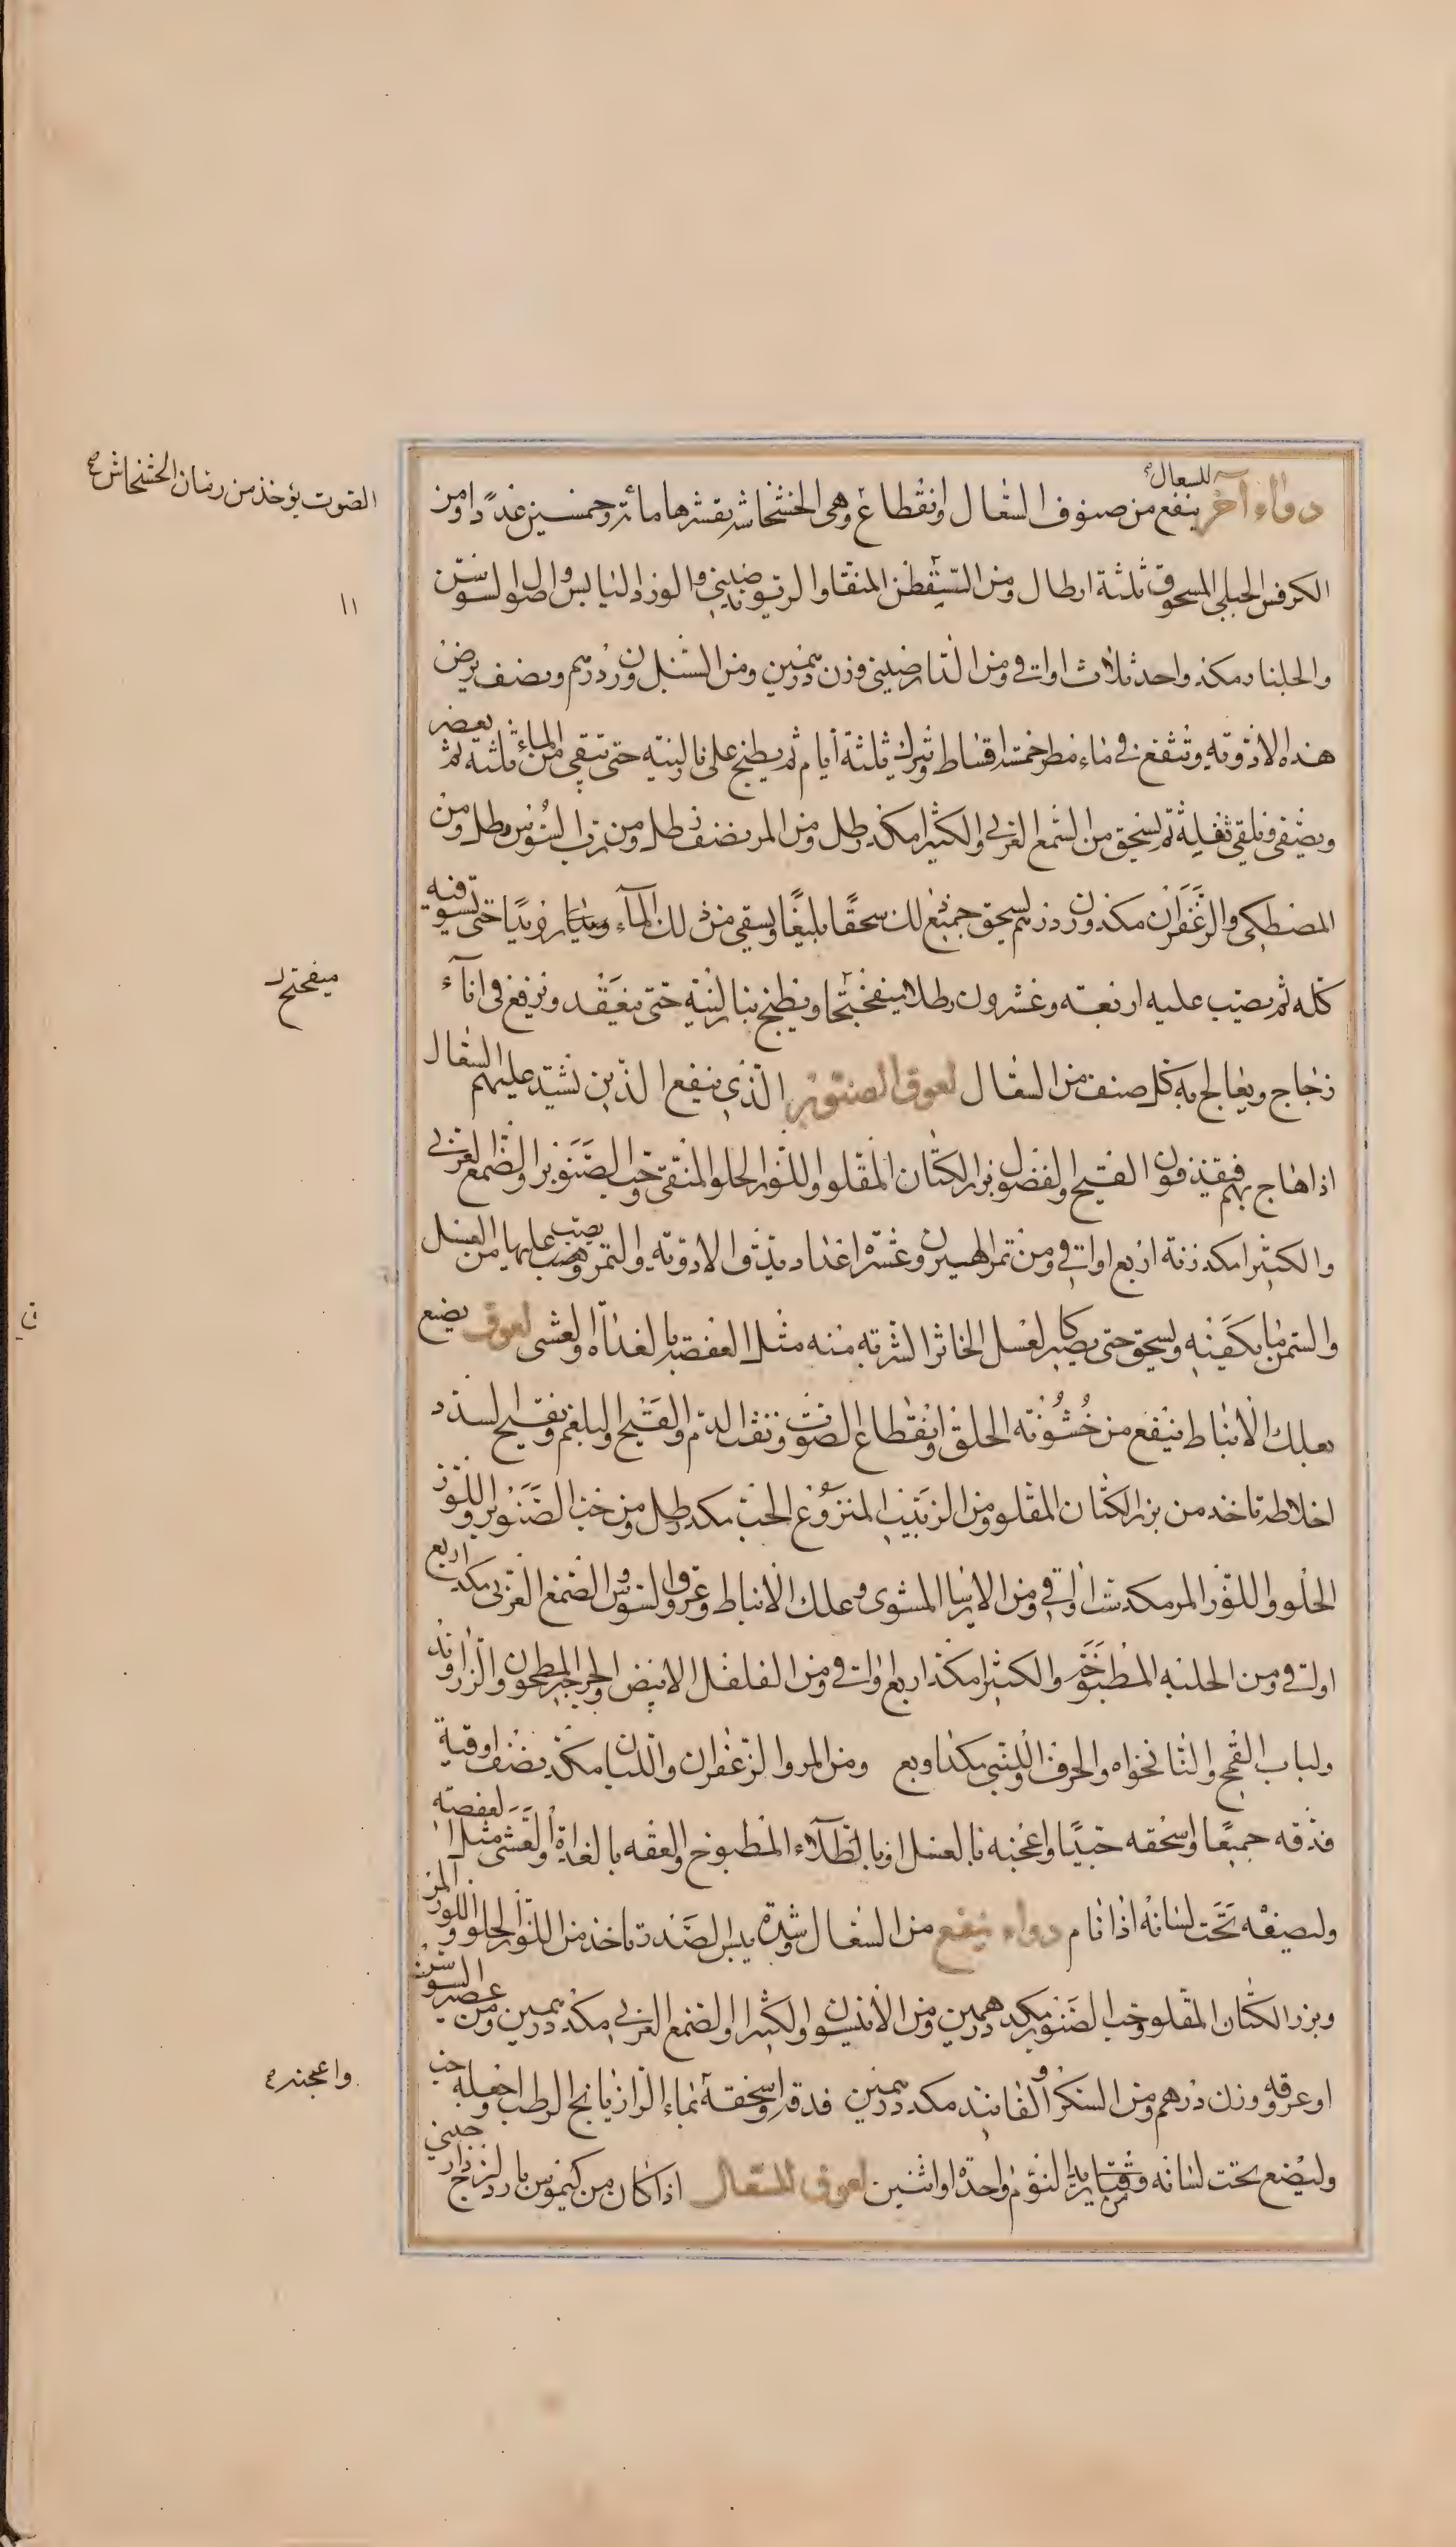 دواء آخر للسعال ينفع من صنوف السعال وانقطاع وهى الخشخاش بقشرها مائة وخمسين عددًا ومن
الصوت يؤخذ من رمان الخشخاش
الكرفس الجبلى المسحوق ثلثة ارطال ومن المنقا والوز اليابس واصول السوسن
والجلنار مكد واحد ثلاث اواقى ومن الدارصينى وزن درهمين ومن السنبل وزن درهم ونصف يرض
هذه الادوية وتنقع فى ماء مطر خمسة اقساط وتترك ثلثة أيام ثم يطبخ على نار لينة حتى يبقى من الماء ثلثه ثم يعصر
ويصفى ويلقى ثفيله ثم يسحق من الصمغ العربى والكثيرا مكد رطل ومن المر نصف رطل ومن رب السوس رطل ومن
المصطكى والزعفران مكد وزن درهم يسحق جميع ذلك سحقًا بليغًا ويسقى من ذلك المآء رويدًا حتى تسوفيه
كله ثم يصب عليه اربعة وعشرون رطلا ميفختجا ويطبخ بنار لينة حتى ينعقد ويرفع فى انآء
ميفختج
زجاج ويعالج به كل صنف من السعال لعوق الصنوبر الذى ينفع الذين يشتد عليهم السعال
اذا هاج بهم فيقذفون القيح والفضول بزر الكتان المقلو واللوز الحلو المنقى وحب الصنوبر والصمغ العربى
والكثيرا مكد زنة اربع اواقى ومن تمر الهيرون عشرة اعداد يدق الادوية والتمر ويصب عليها من العسل
والسمن ما يكفيه ويسحق حتى يصير كالعسل الخاثر الشربة منه مثل العفصة بالغداة والعشى لعوق يصنع
بعلك الانباط ينفع من خشونة الحلق وانقطاع الصوت ونفث الدم والقيح والبلغم وتفتيح السدد
اخلاطه تاخذ من بزر الكتان المقلو ومن الزبيب المنزوع الحب مكد رطل ومن حب الصنوبر واللوز
الحلو واللوز المر مكد ست اواقى ومن الايرسا المشوى وعلك الانباط وعروق السوس والصمغ العربى مكد اربع
اواقى ومن الحلبة المطبوخة والكثيرا مكد اربع اواقى ومن الفلفل الابيض والجرجير المطحون والزراوند
ولباب القمح والنانخواه والحرف واللبنى مكد اوبع ومن المر والزعفران واللبان مكد نصف اوقية
فدقه جميعًا واسحقه جيدًا واعجنه بالعسل او بالطلاء المطبوخ والعقه بالغداة والعشى مثل العفصة
وليصفه تحت لسانه اذا نام دواء ينفع من السعال وشدة يبس الصدر تاخذ من اللوز الحلو واللوز المر
وبزر الكتان المقلو وحب الصنوبر مكد درهمين ومن الانيسون والكثيرا والصمغ العربى مكد درهمين ومن عصير السوس
او عرقه وزن درهم ومن السكر او الفانيد مكد درهمين فدقه واسحقه بماء الرازيانج الرطب واجعله حب
واعجنه
وليضع تحت لسانه وقت يريد النوم واحدة او اثنين لعوق للسعال اذا كان من كيموس بارد لزج